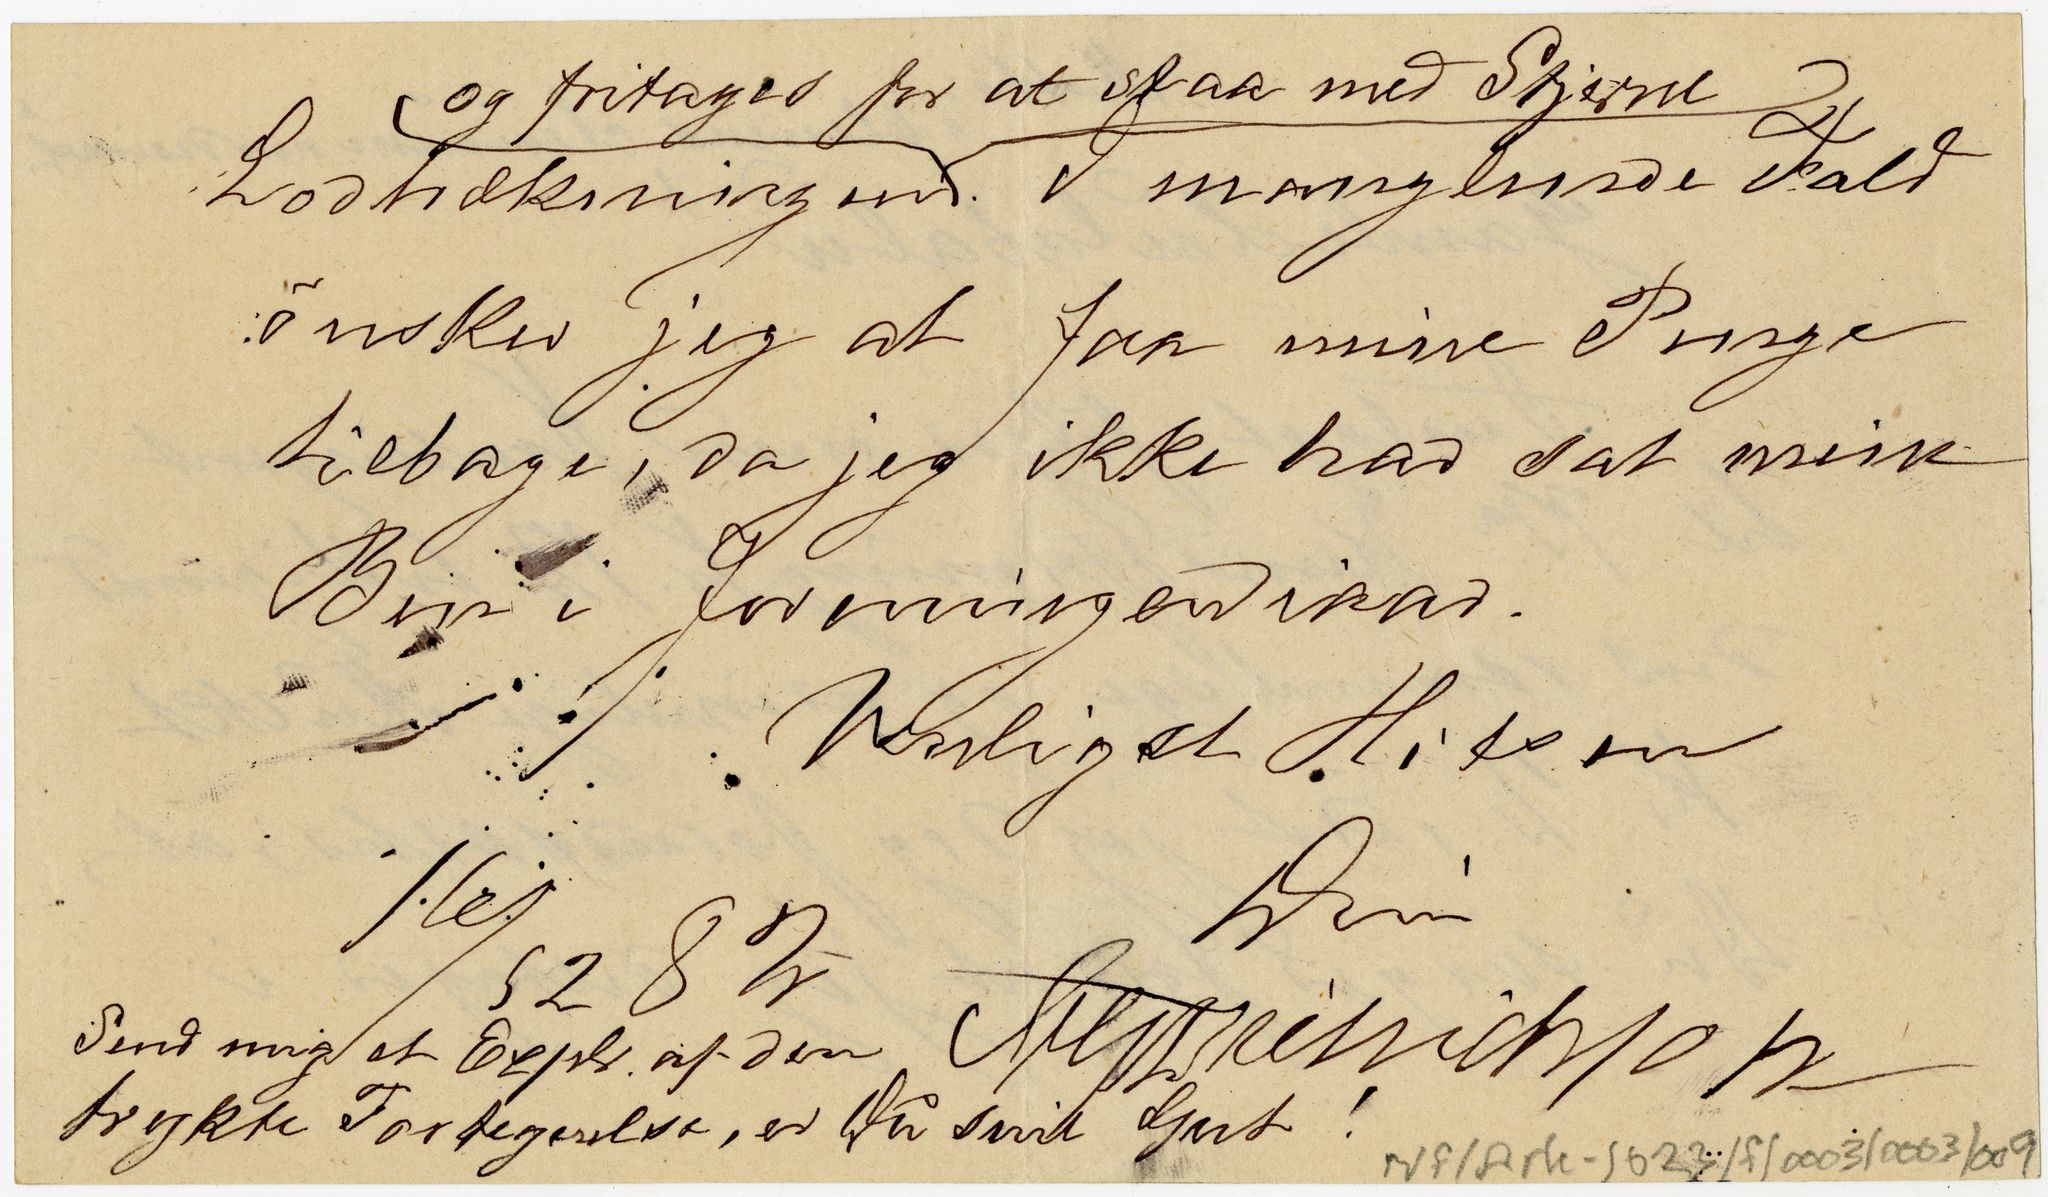 og fritages for at staa med Stjerne
Lodtrækningen. I manglende Fald
önsker jeg at faa mine Penge
tilbage, da jeg ikke har sat mine
Ben i Foreningen iaar.
Venligst Hilsen
Din
52 87
Send mig et Expl. af den
trykte Fortegnelse, er Du snil Gut!
NF/Ark-1022/f/0003/0003/009